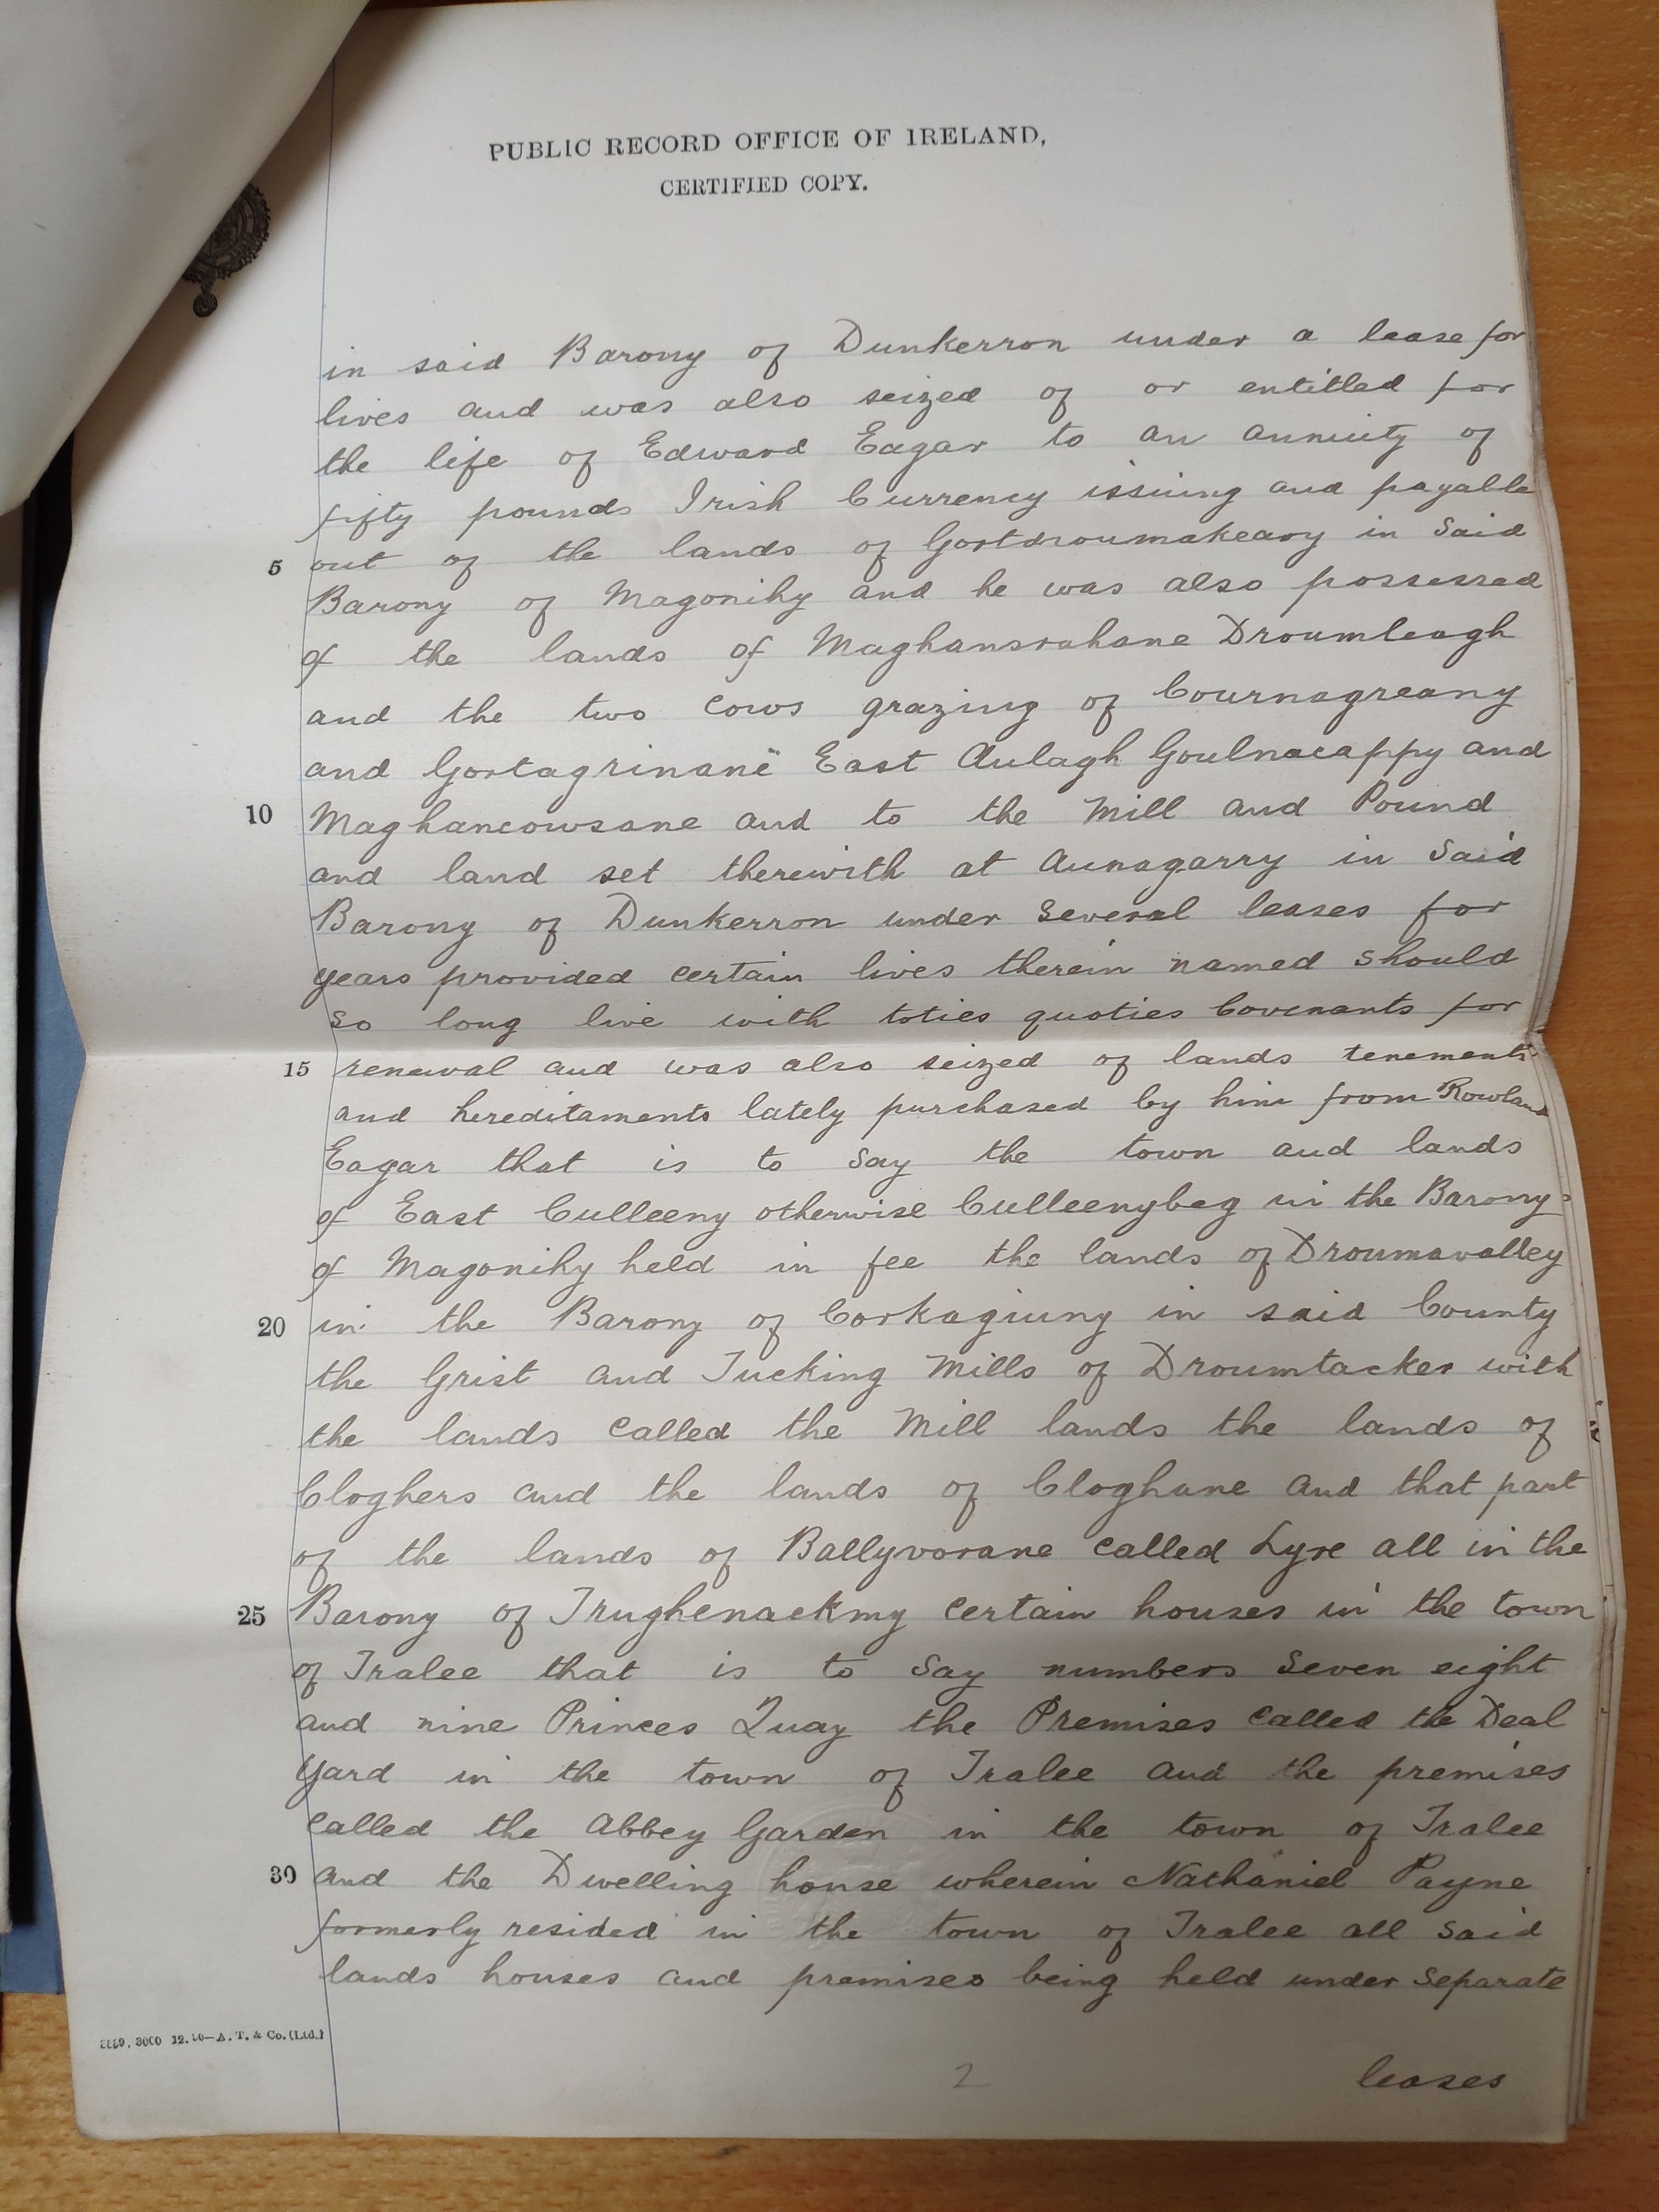 PUBLIC RECORD OFFICE OF IRELAND,
CERTIFIED COPY.
in said Barony of Dunkerron under a lease for
lives and was also seized of or entitled for
the life of Edward Eagar to an annuity of
fifty pounds Irish Currency issuing and payable
5 out of the lands of Gortdroumakeary in Said
Barony of Magonihy and he was also possessed
of the lands of Maghansrahane Droumleagh
and the two Cows grazing of Cournagreany
and Gortagrinane East Aulagh Goulnacappy and
10 Maghancowsane and to the Mill and Pound
and land set therewith at Aunagarry in Said
Barony of Dunkerron under Several leases for
years provided certain lives therein named should
so long live with toties quoties Covenants for
15 renewal and was also seized of lands tenements
and hereditaments lately purchased by him from Rowland
Eagar that is to say the town and lands
of East Culleeny otherwise Culleenybeg in the Barony
of Magonihy held in fee the lands of Droumavalley
20 in the Barony of Corkaguiny in said County
the Grist and Tucking Mills of Droumtacker with
the lands called the Mill lands the lands of
Cloghers and the lands of Cloghane and that part
of the lands of Ballyvorane called Lyre all in the
25 Barony of Trughenackmy certain houses in the town
of Tralee that is to say numbers Seven eight
and nine Princes Quay the Premises called the Deal
Yard in the town of Tralee and the premises
called the Abbey Garden in the town of Tralee
30 and the Dwelling house wherein Nathaniel Payne
formerly resided in the town of Tralee all said
lands houses and premises being held under Separate
3000 12. —A. T. & Co. (Ltd.)
2
leases